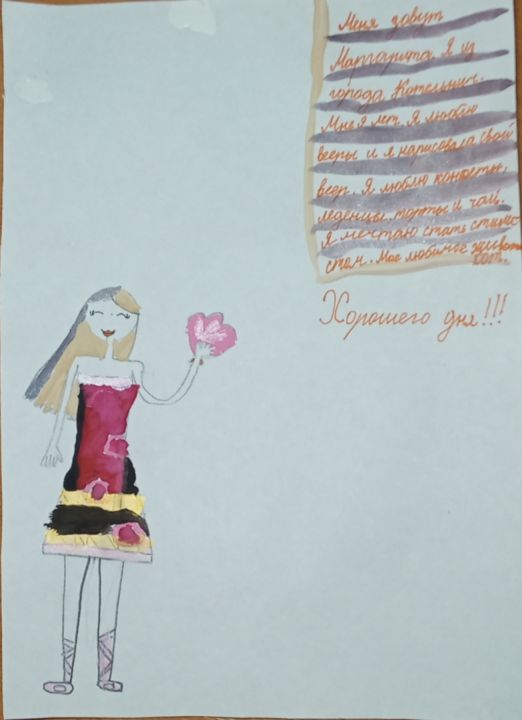 Меня зовут
Маргарита. Я из
города Котельнич.
Мне 9 лет. Я люблю
вееры и я нарисовала свой
веер. Я люблю конфеты,
леденцы, торты и чай.
Я мечтаю стать стили-
стом. Мое любимое животн
кот.
Хорошего дня!!!